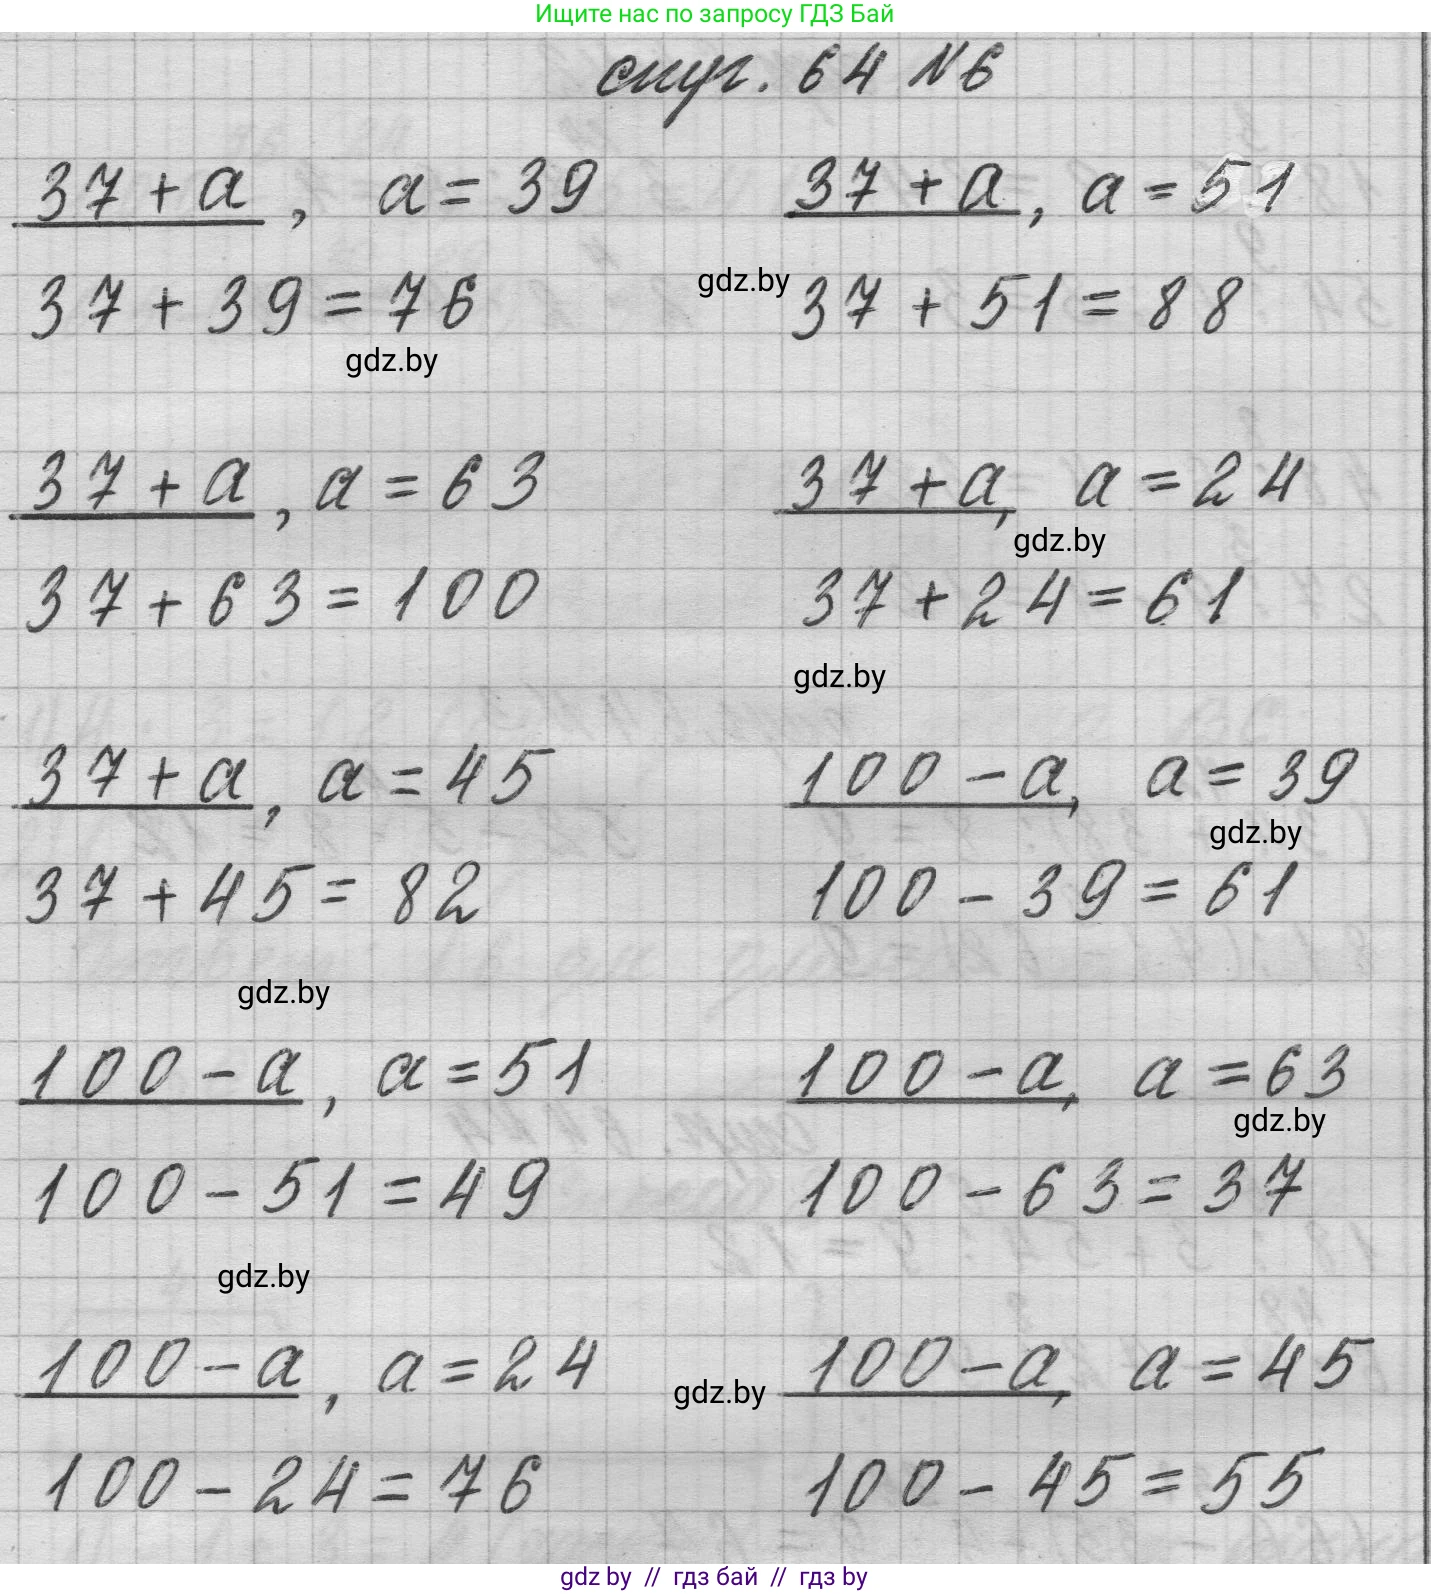 Ищите нас по запросу ГДЗ Бай
64 №6
37 + а, а = 39 37 + а, а = 51
gdz.by
37 + 39 = 76 37 + 51 = 88
gdz.by
37 + а, а = 63 37 + а, а = 24
gdz.by
37 + 63 = 100 37 + 24 = 61
gdz.by
37 + а, а = 45 100 - а, а = 39
gdz.by
37 + 45 = 82 100 - 39 = 61
gdz.by
100 - а, а = 51 100 - а, а = 63
gdz.by
100 - 51 = 49 100 - 63 = 37
gdz.by
100 - а, а = 24 100 - а, а = 45
gdz.by
100 - 24 = 76 100 - 45 = 55
gdz.by // гдз бай // гдз by